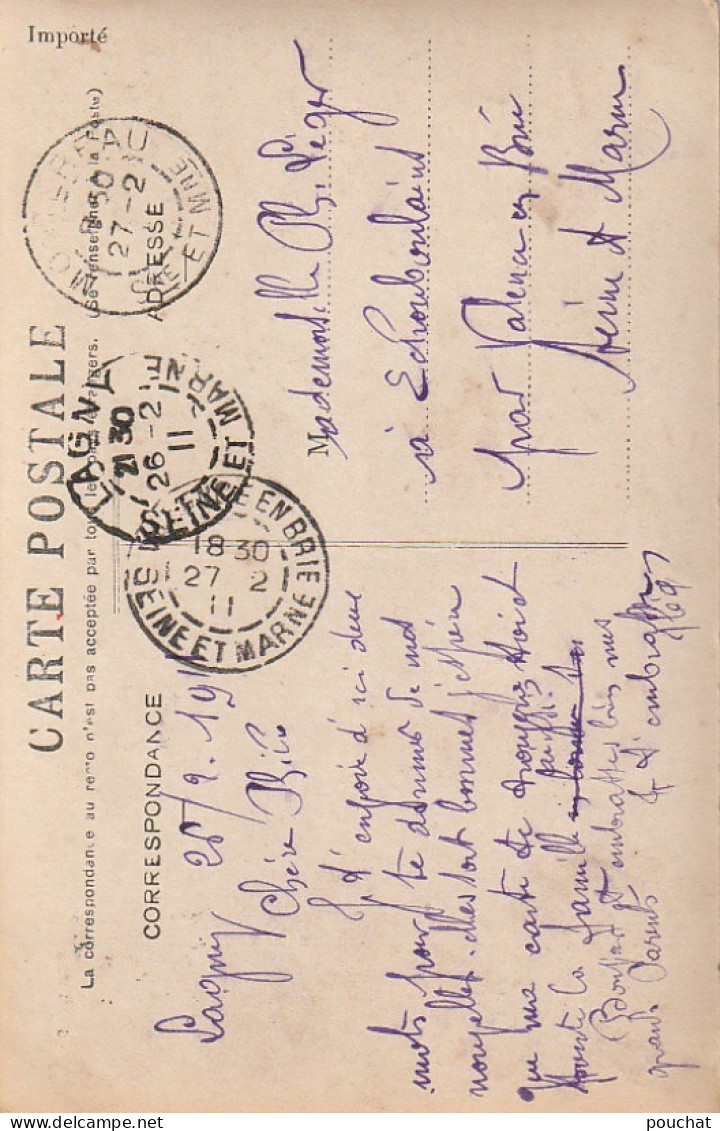 Importé
CARTE POSTALE
La correspondance au recto n'est pas acceptée par tous les pays étrangers. (Se renseigner à la Poste)
CORRESPONDANCE
ADRESSE
MONTEREAU
8 30
27-2
SNE ET MNE
LAGNY
21 30
26-2
11
SEINE ET MARNE
EN BRIE
18 30
27 2
11
SEINE ET MARNE
Lagny 26/2.1911
Chère
Je t'envoie d'ici deux
mots pour te donner de nos
nouvelles elles sont bonnes j'espère
que ma carte te trouvera
toute la famille aussi
Bonjour et embrasses bien mes
grands Parents & t'embrasse
Mademoiselle Ph. Léger
à Echouboulains
par Valence en Brie
Seine et Marne
www.delcampe.net
pouchat